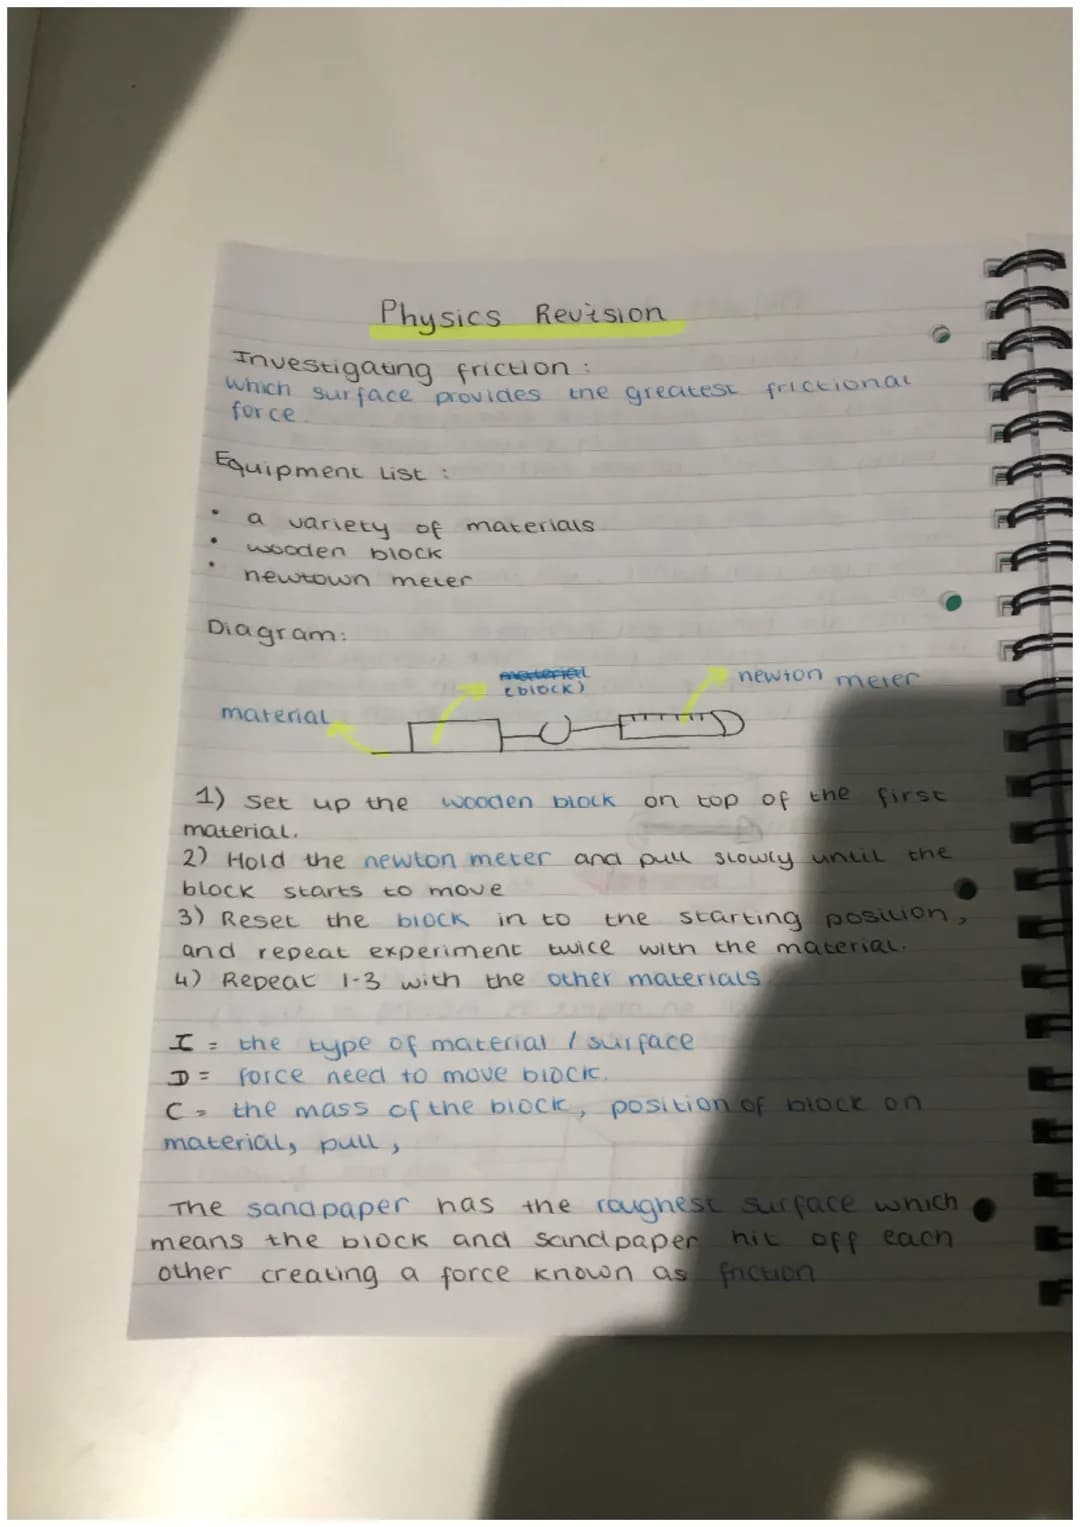 Physics Revision
Investigating friction :
which surface provides the greatest frictional
force.
Equipment List :
• a variety of materials
• wooden block
• newtown meter
Diagram:
material
(block)
newton meter
material
1) Set up the wooden block on top of the first
material.
2) Hold the newton meter and pull slowly until the
block starts to move
3) Reset the block in to the starting position,
and repeat experiment twice with the material.
4) Repeat 1-3 with the other materials.
I = the type of material / surface
D = force need to move block.
C = the mass of the block, position of block on
material, pull,
The sandpaper has the roughest surface which
means the block and sandpaper hit off each
other creating a force known as friction